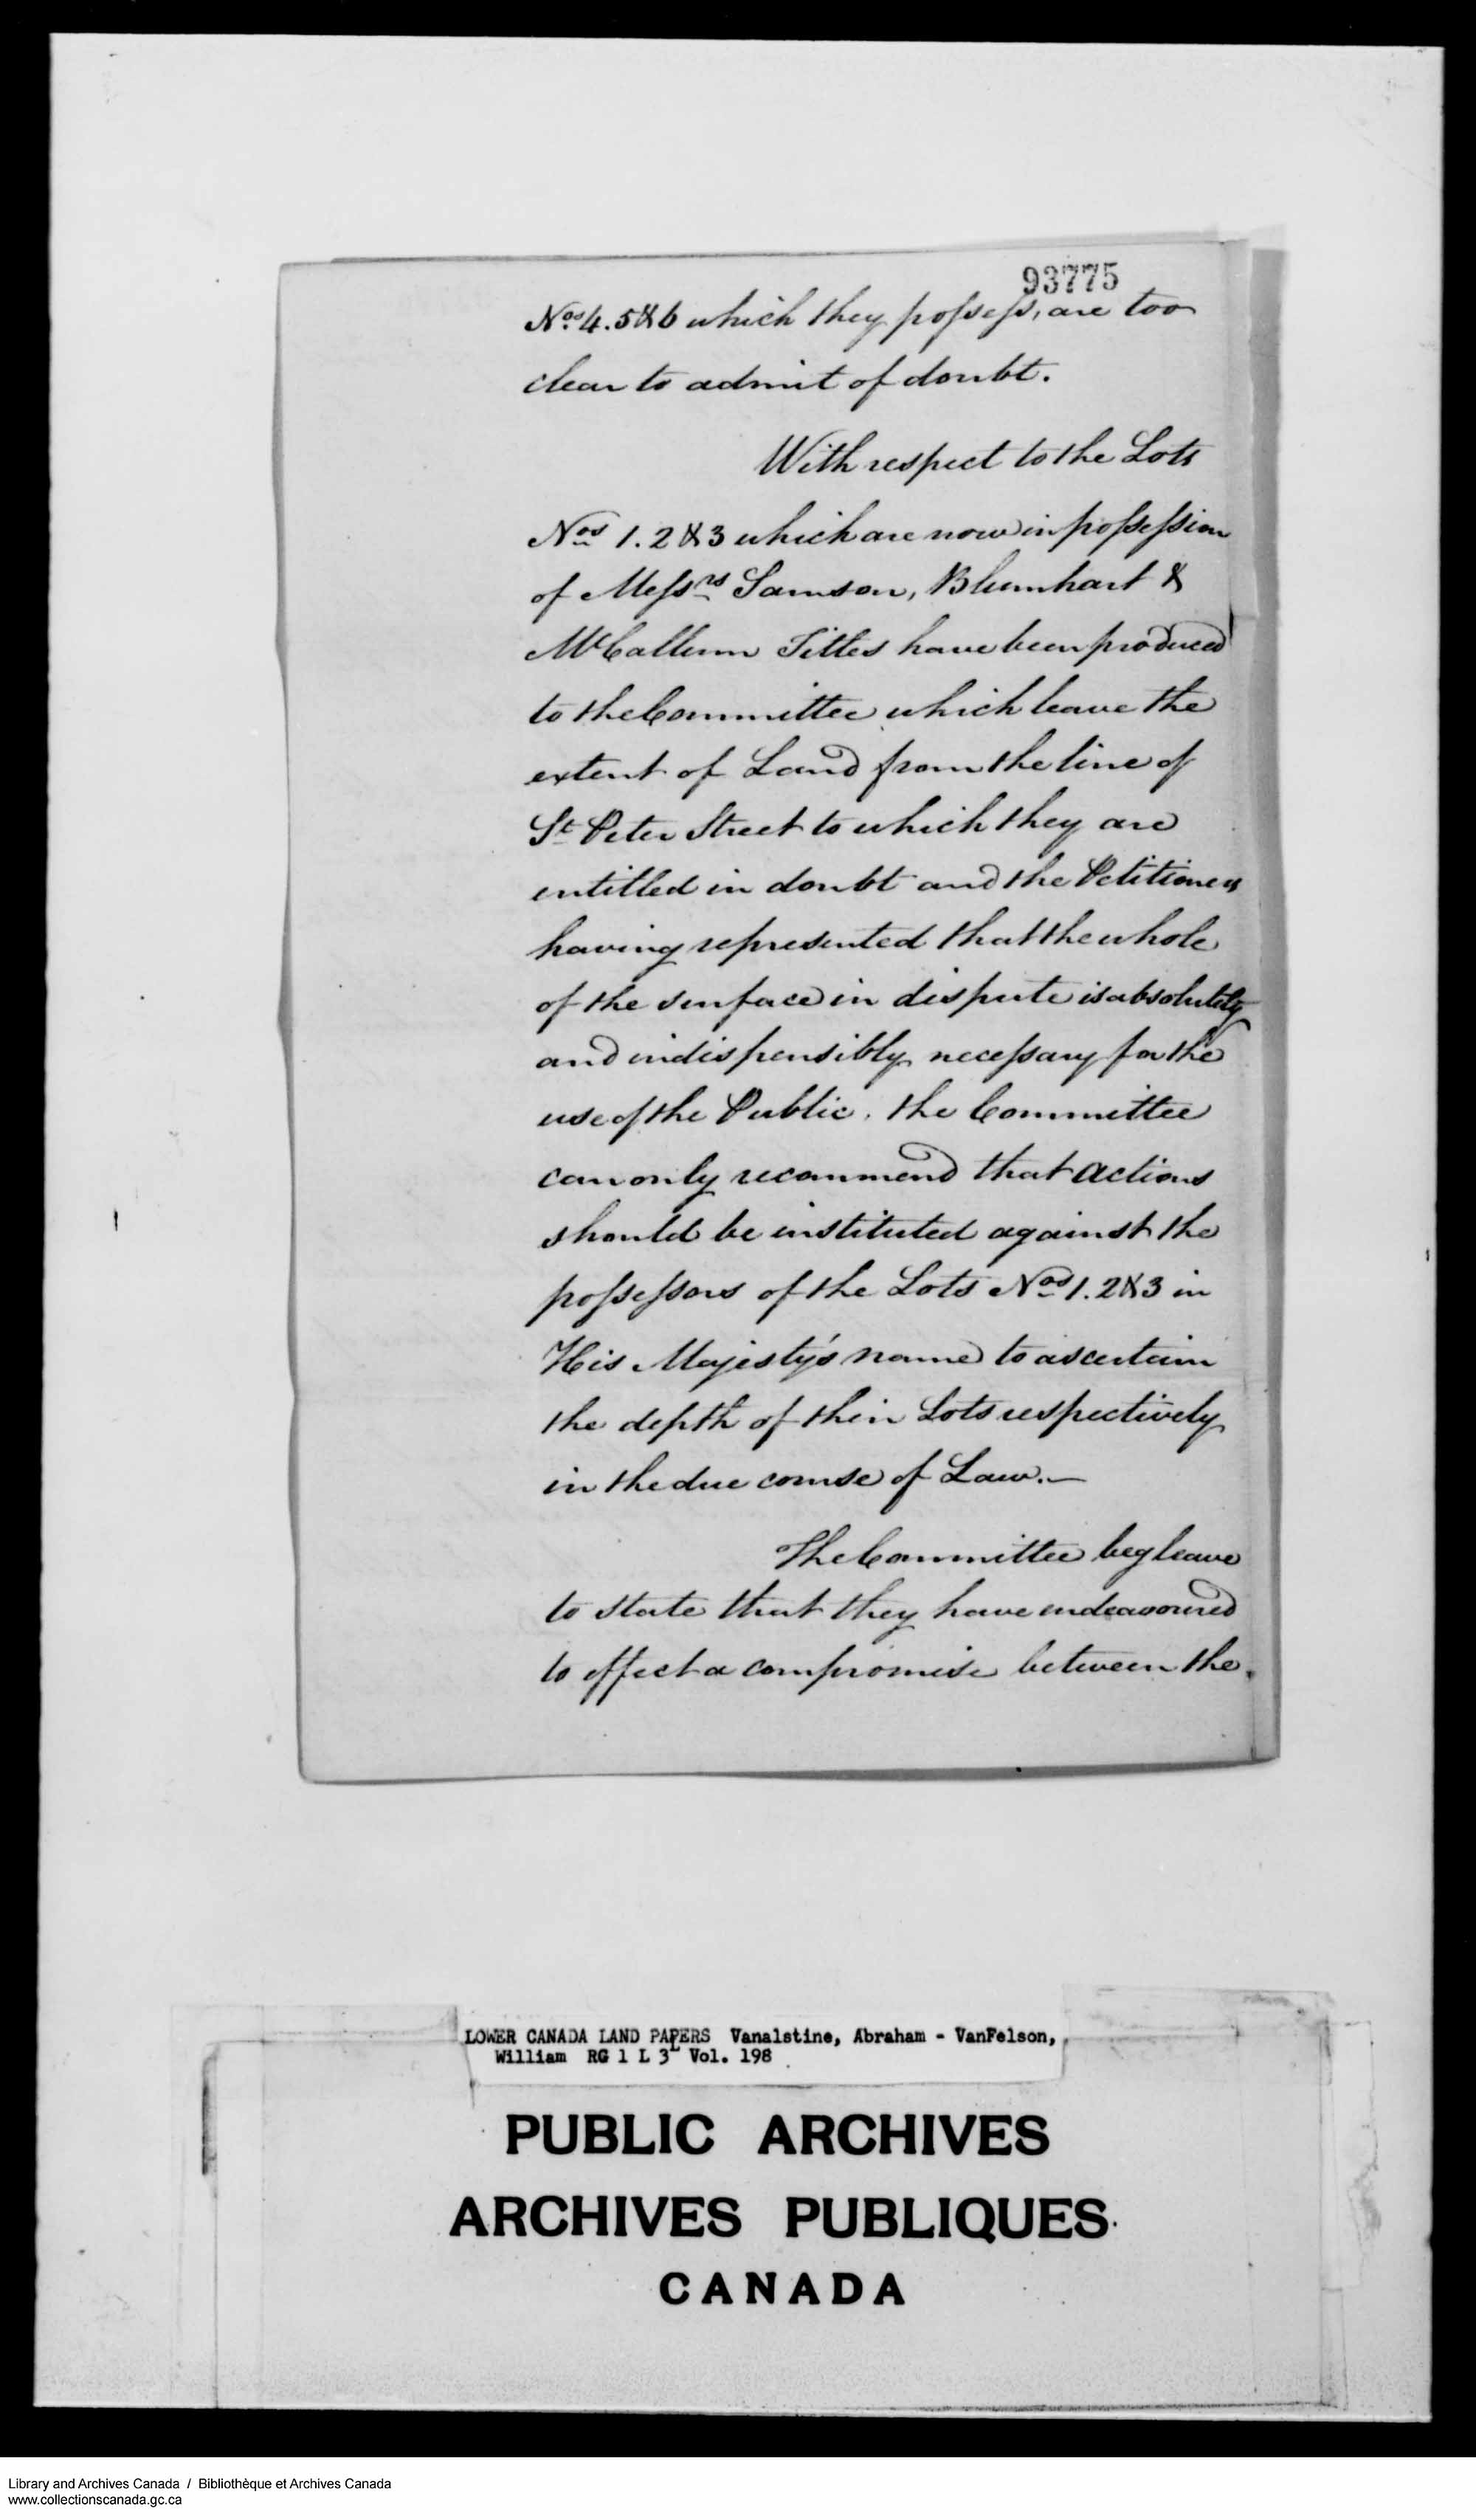 93775
Nos 4. 5 & 6 which they possess, are too
clear to admit of doubt.
With respect to the Lots
Nos 1. 2 & 3 which are now in possession
of Messrs Samson, Blumhart &
McCallum Titles have been produced
to the Committee which leave the
extent of Land from the line of
St Peter Street to which they are
entitled in doubt and the Petitioners
having represented that the whole
of the surface in dispute is absolutely
and indispensibly necessary for the
use of the Public. the Committee
can only recommend that actions
should be instituted against the
possessors of the Lots Nos 1. 2 & 3 in
His Majesty's name to ascertain
the depth of their Lots respectively
in the due course of Law.—
The Committee beg leave
to state that they have endeavoured
to effect a compromise between the
LOWER CANADA LAND PAPERS Vanalstine, Abraham - VanFelson,
William RG 1 L 3L Vol. 198
PUBLIC ARCHIVES
ARCHIVES PUBLIQUES
CANADA
Library and Archives Canada / Bibliothèque et Archives Canada
www.collectionscanada.gc.ca